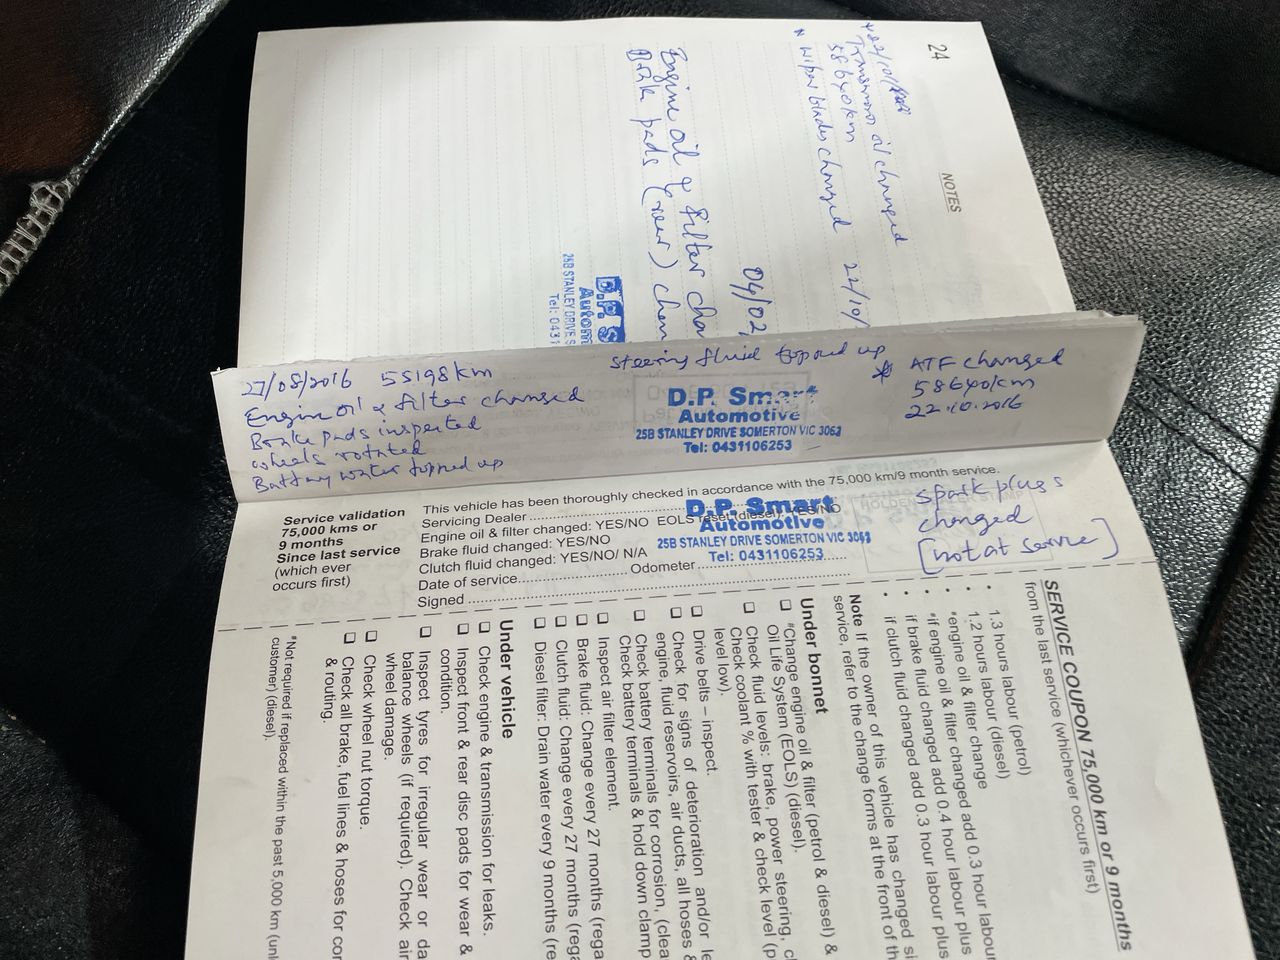 24
NOTES
Transmission oil changed
58640km
* Wiper blades changed 22/10/
04/02
Engine oil & filter cha
Brake pads (rear) chan
D.P. S
Autom
25B STANLEY DRIVE S
Tel: 0431
27/08/2016 55198km
Engine oil & filter changed
Brake pads inspected
wheels rotated
Battery water topped up
steering fluid topped up
* ATF changed
58640km
22.10.2016
D.P. Smart
Automotive
25B STANLEY DRIVE SOMERTON VIC 3062
Tel: 0431106253
Service validation
75,000 kms or
9 months
Since last service
(which ever
occurs first)
This vehicle has been thoroughly checked in accordance with the 75,000 km/9 month service.
Servicing Dealer
Engine oil & filter changed: YES/NO EOLS reset (diesel): YES/NO
Brake fluid changed: YES/NO
Clutch fluid changed: YES/NO/ N/A
Date of service Odometer
Signed
D.P. Smart
Automotive
25B STANLEY DRIVE SOMERTON VIC 3062
Tel: 0431106253
spark plugs
changed
[not at service]
SERVICE COUPON 75,000 km or 9 months
from the last service (whichever occurs first)
• 1.3 hours labour (petrol)
1.2 hours labour (diesel)
• *engine oil & filter change
• *if engine oil & filter changed add 0.3 hour labour
• if brake fluid changed add 0.4 hour labour plus
• if clutch fluid changed add 0.3 hour labour plus
Note If the owner of this vehicle has changed si
service, refer to the change forms at the front of th
Under bonnet
❑ *Change engine oil & filter (petrol & diesel) &
Oil Life System (EOLS) (diesel).
❑ Check fluid levels: brake, power steering, cl
Check coolant % with tester & check level (p
level low).
❑ Drive belts – inspect.
❑ Check for signs of deterioration and/or le
engine, fluid reservoirs, air ducts, all hoses &
❑ Check battery terminals for corrosion, (clea
Check battery terminals & hold down clamp
❑ Inspect air filter element.
❑ Brake fluid: Change every 27 months (rega
❑ Clutch fluid: Change every 27 months (rega
❑ Diesel filter: Drain water every 9 months (re
Under vehicle
❑ Check engine & transmission for leaks.
❑ Inspect front & rear disc pads for wear &
condition.
❑ Inspect tyres for irregular wear or da
balance wheels (if required). Check air
wheel damage.
❑ Check wheel nut torque.
❑ Check all brake, fuel lines & hoses for cor
& routing.
*Not required if replaced within the past 5,000 km (unl
customer) (diesel).